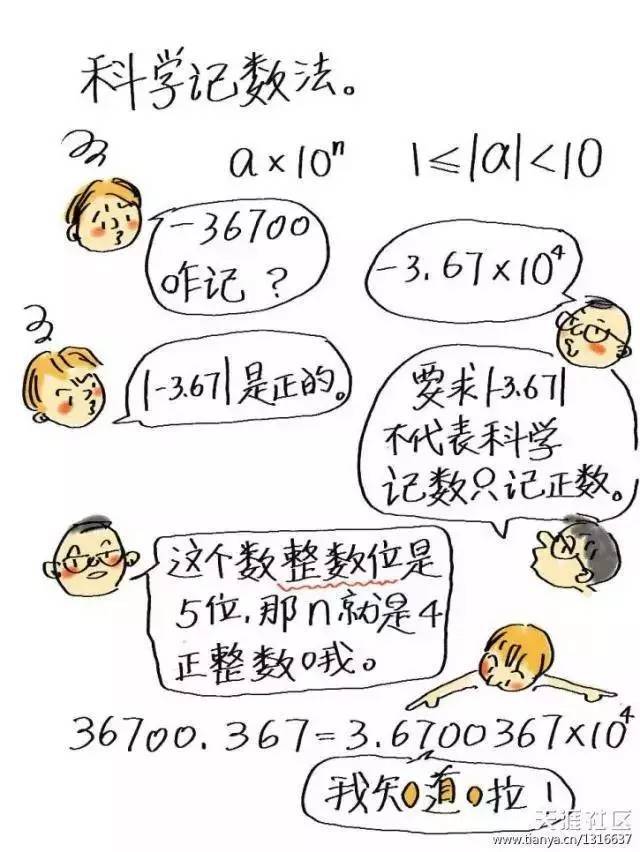 科学记数法。
a×10ⁿ 1≤|a|<10
-36700
咋记？
-3.67×10⁴
|-3.67|是正的。
要求|-3.67|
不代表科学
记数只记正数。
这个数整数位是
5位，那n就是4
正整数哦。
36700.367=3.6700367×10⁴
我知道啦！
天涯社区
www.tianya.cn/1316637